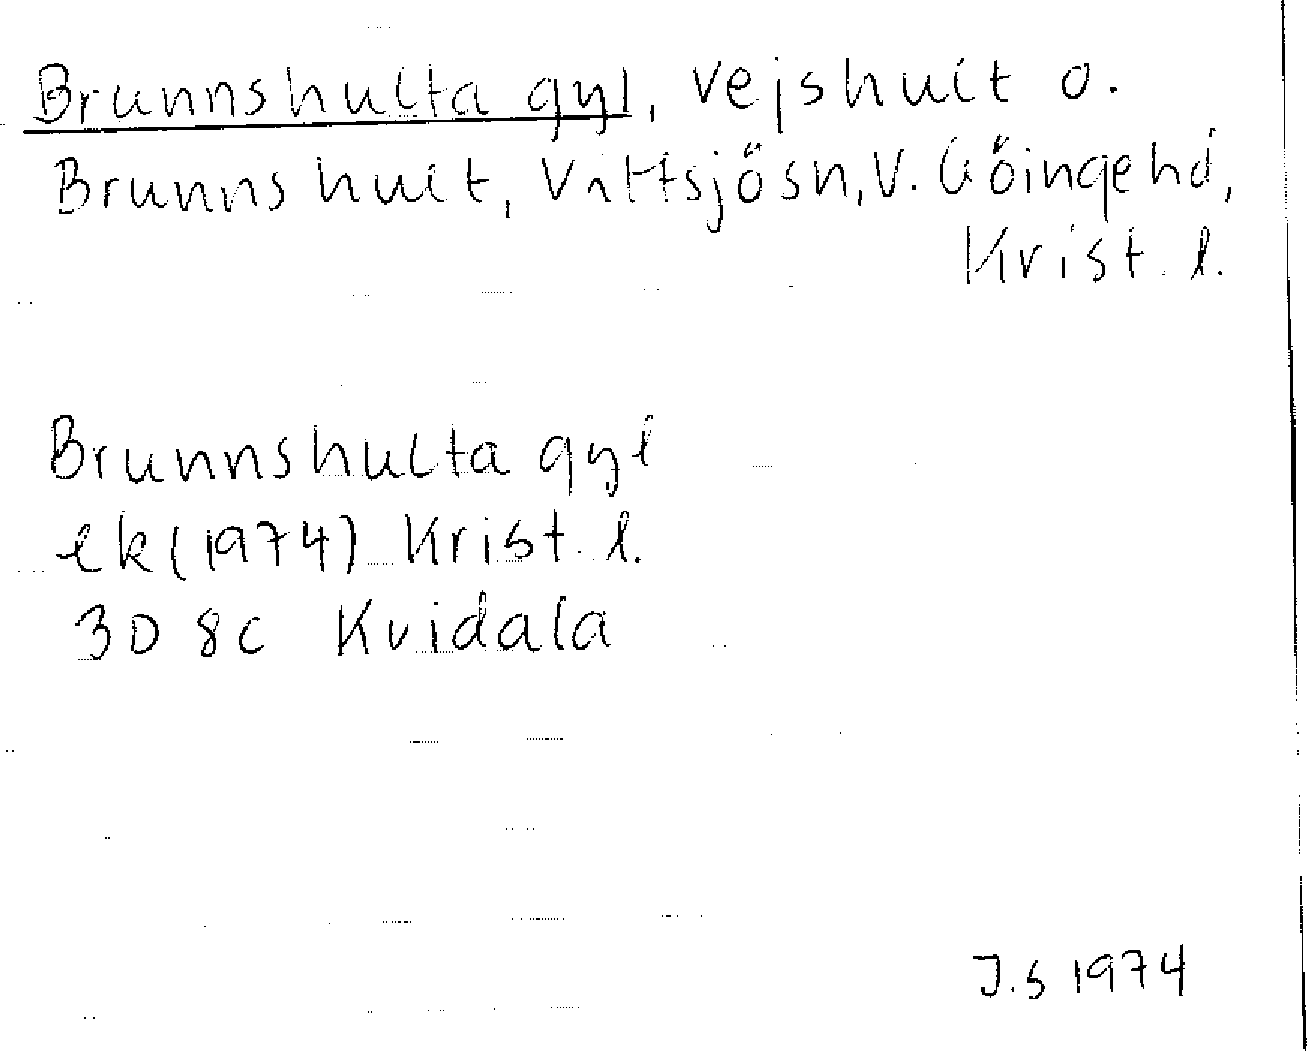 Brunnshulta gyl, Vejshult o.
Brunnshult, Vittsjö sn, V. Göinge hd,
Krist. l.
Brunnshulta gyl
ek (1974) Krist. l.
3D 8c Kvidala
J.S 1974